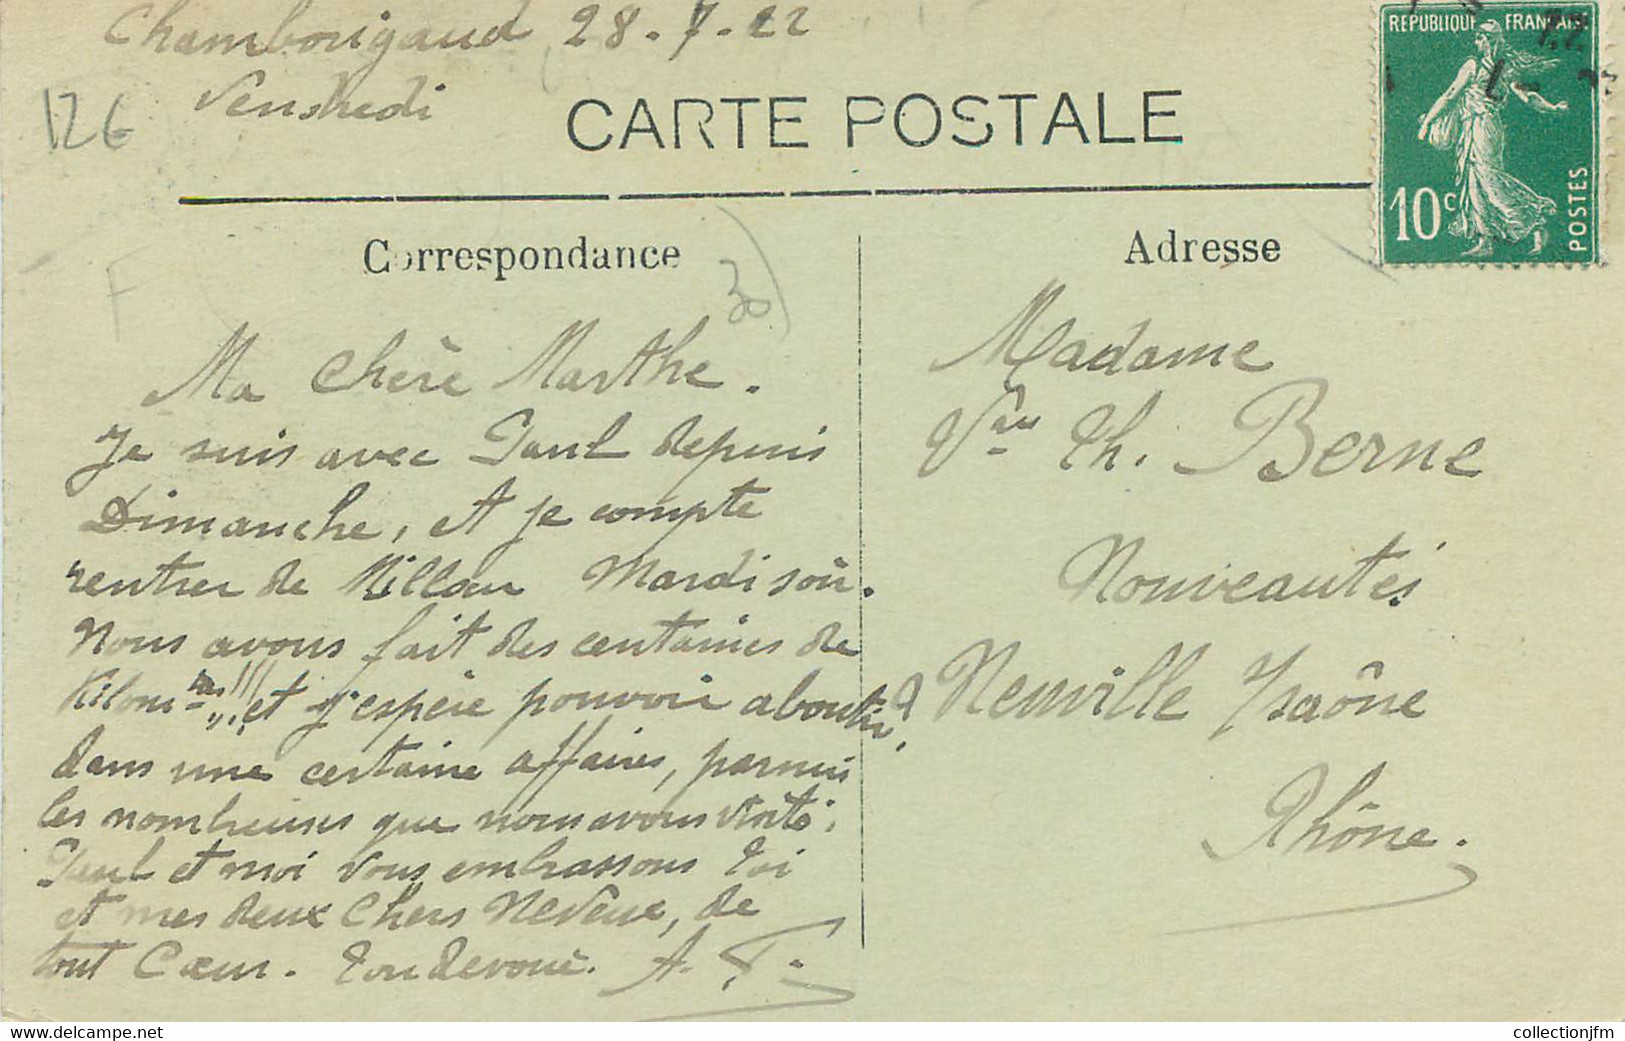 Chamborigaud 28.7.22
Vendredi
12€
CARTE POSTALE
REPUBLIQUE FRANÇAISE
10c
POSTES
Correspondance
Adresse
30
F
Ma Chère Marthe.
Je suis avec Paul depuis
Dimanche, et je compte
rentrer de Millau Mardi soir.
Nous avons fait des centaines de
Kilom tres!!! et j'espère pouvoir aboutir?
dans une certaine affaires, parmis
les nombreuses que nous avons visité.
Paul et moi vous embrassons toi
et mes deux Chers Neveux, de
tout Cœur. Ton devoué. A. T.
Madame
Vve Th. Berne
Nouveautés
Neuville s/Saône
Rhône.
www.delcampe.net
collectionjfm